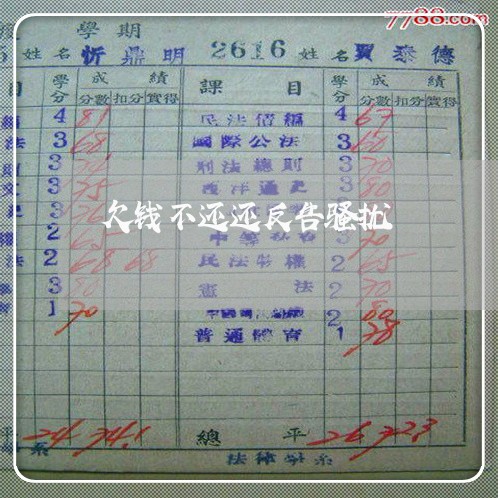 7788.com
學期
姓名 忻鼎明 2616 姓名 賈泰德
目 學分 成績 課目 學分 成績
分數 扣分 實得 分數 扣分 實得
4 81 民法債編 4 67
法 3 68 國際公法 3 60
3 刑法總則 3 70
3 75 西洋通史 3 80
欠钱不还还反告骚扰
2 3 70
法 2 68 68 民法物權 2 65
3 80 憲法 2 70
1 70 2 80
普通體育 1 78
平 24 74.1 總平 26 72.3
系 法律學系